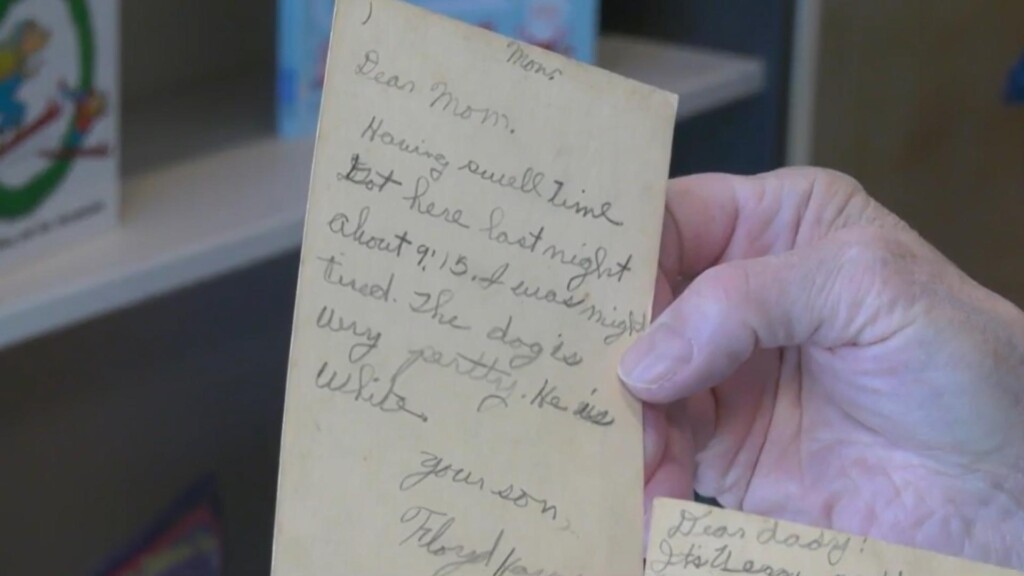 Mon.
Dear Mom.
Having swell Time
Got here last night
about 9:15. I was might
tired. The dog is
very pertty. He is
White.
your son,
Floyd
Dear daddy!